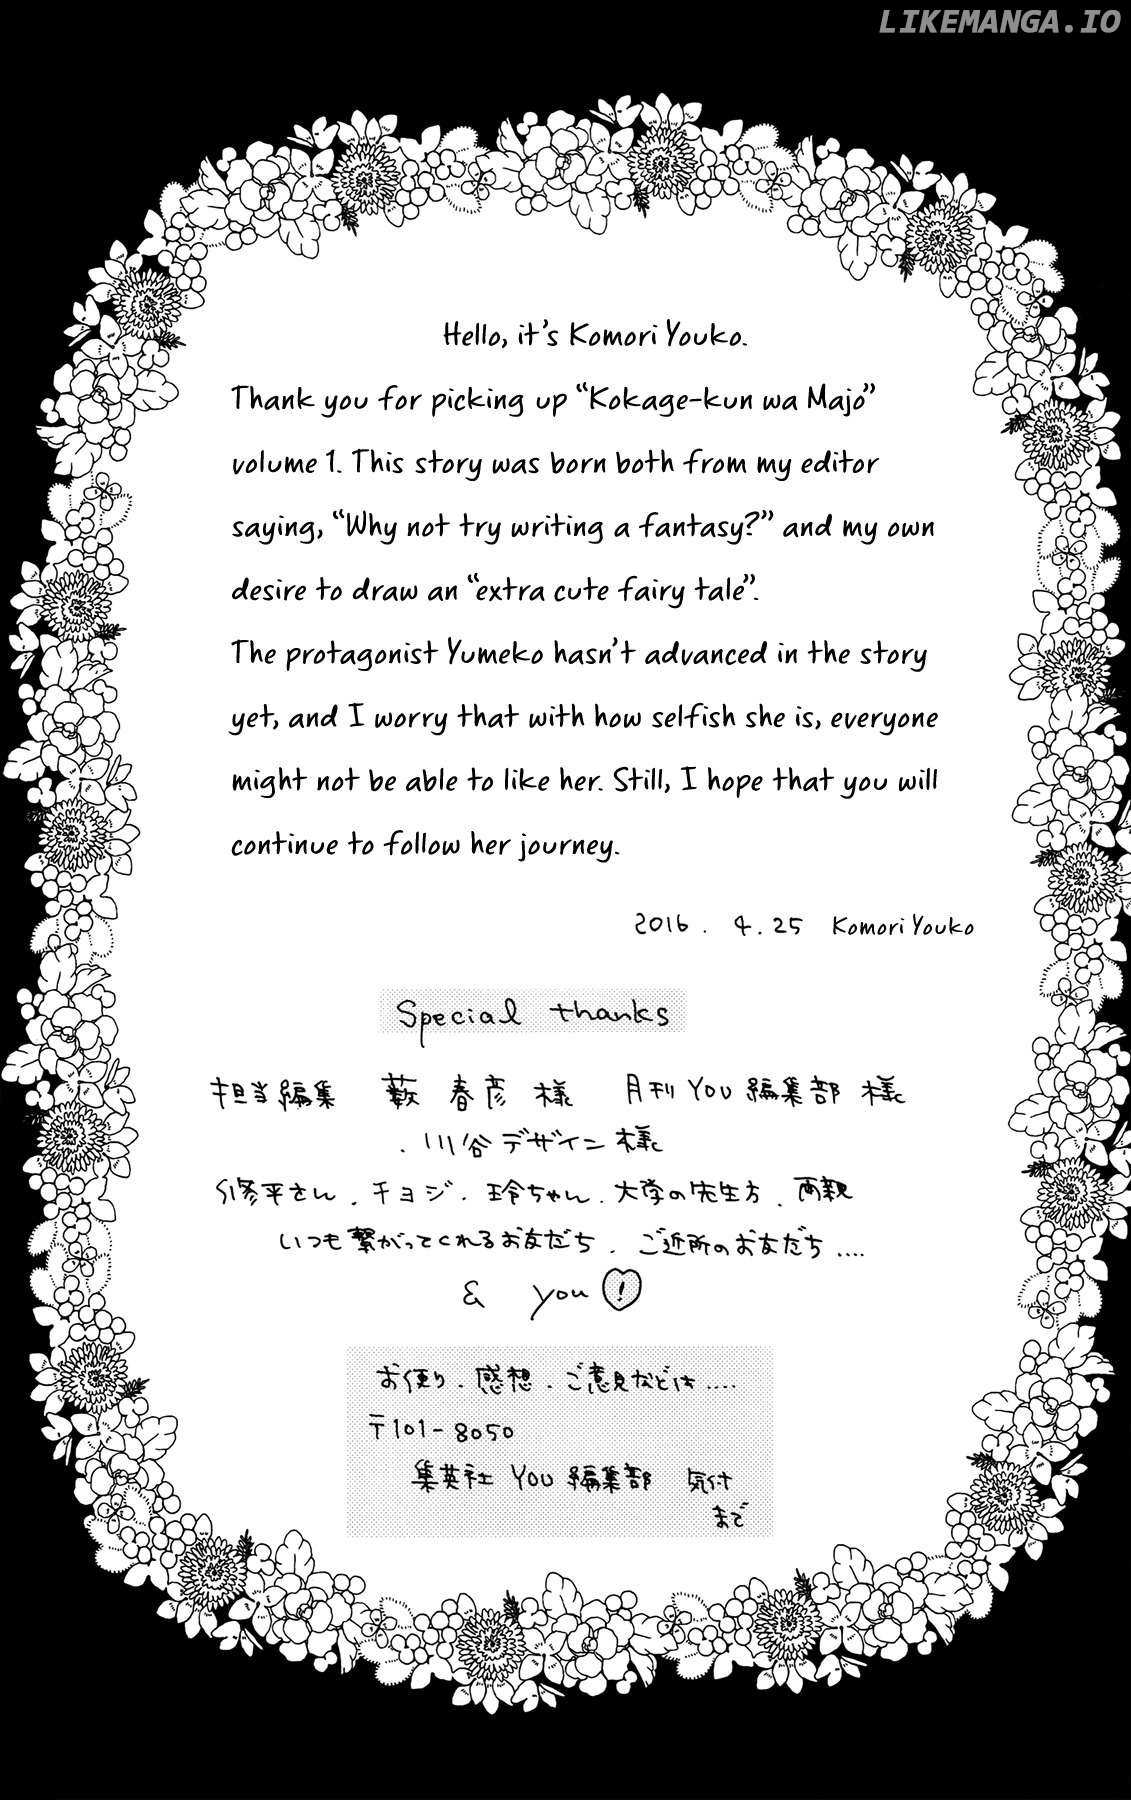 LIKEMANGA.IO
Hello, it's Komori Youko.
Thank you for picking up "Kokage-kun wa Majo"
volume 1. This story was born both from my editor
saying, "Why not try writing a fantasy?" and my own
desire to draw an "extra cute fairy tale".
The protagonist Yumeko hasn't advanced in the story
yet, and I worry that with how selfish she is, everyone
might not be able to like her. Still, I hope that you will
continue to follow her journey.
2016. 4.25 Komori Youko
Special thanks
担当編集 薮 春彦 様 月刊YOU編集部 様
.川谷デザイン様
修平さん.チョジ.玲ちゃん.大学の先生方.両親
いつも繋がってくれるお友だち.ご近所のお友だち....
& you!
お便り.感想.ご意見などは....
〒101-8050
集英社 YOU 編集部 気付
まで